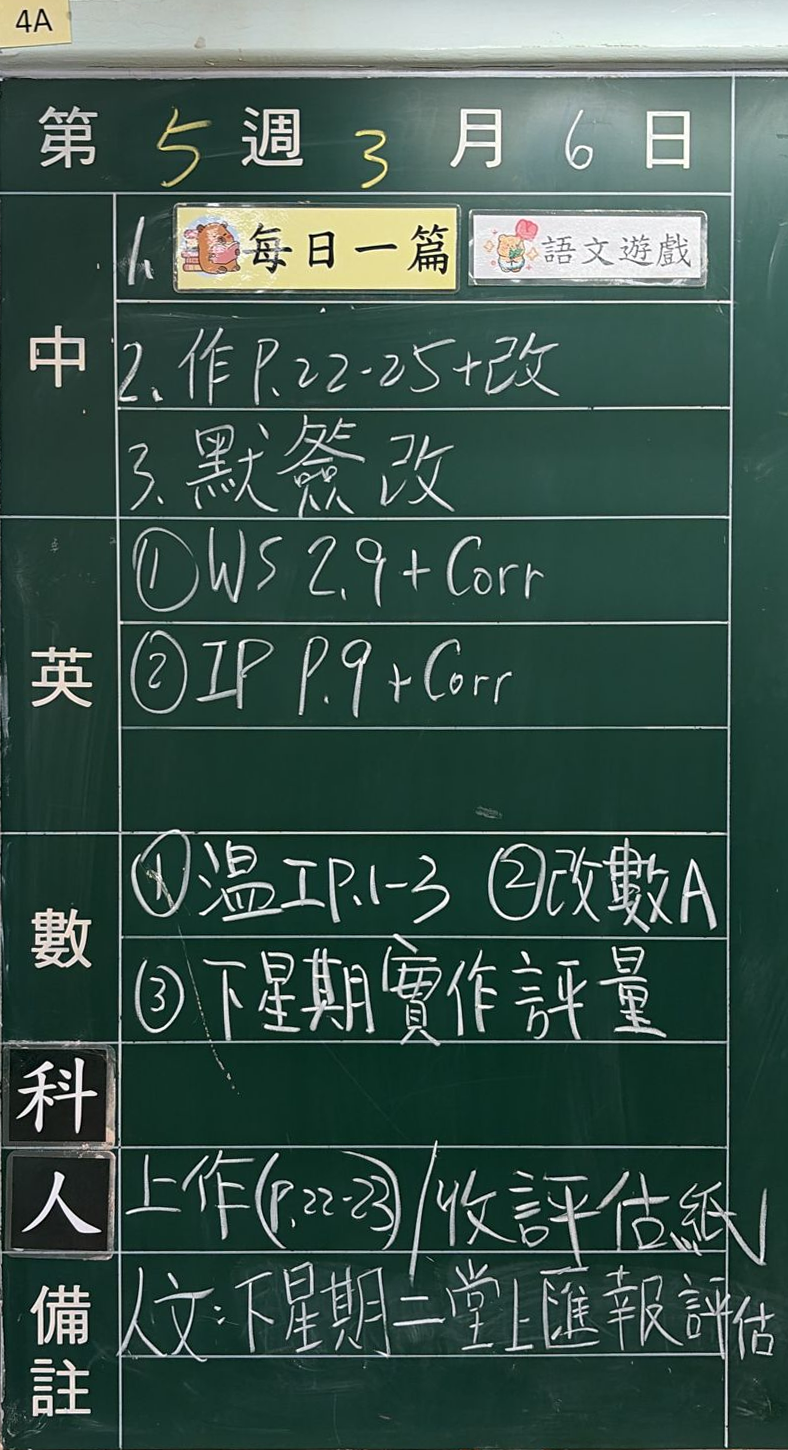 4A
第 5 週 3 月 6 日
中
1. 每日一篇 語文遊戲
2. 作 P.22-25+改
3. 默簽改
英
① WS 2.9 + Corr
② IP P.9 + Corr
數
① 溫IP.1-3 ② 改數A
③ 下星期實作評量
科
人
上作(P.22-23)/收評估紙
備註
人文:下星期二堂上匯報評估